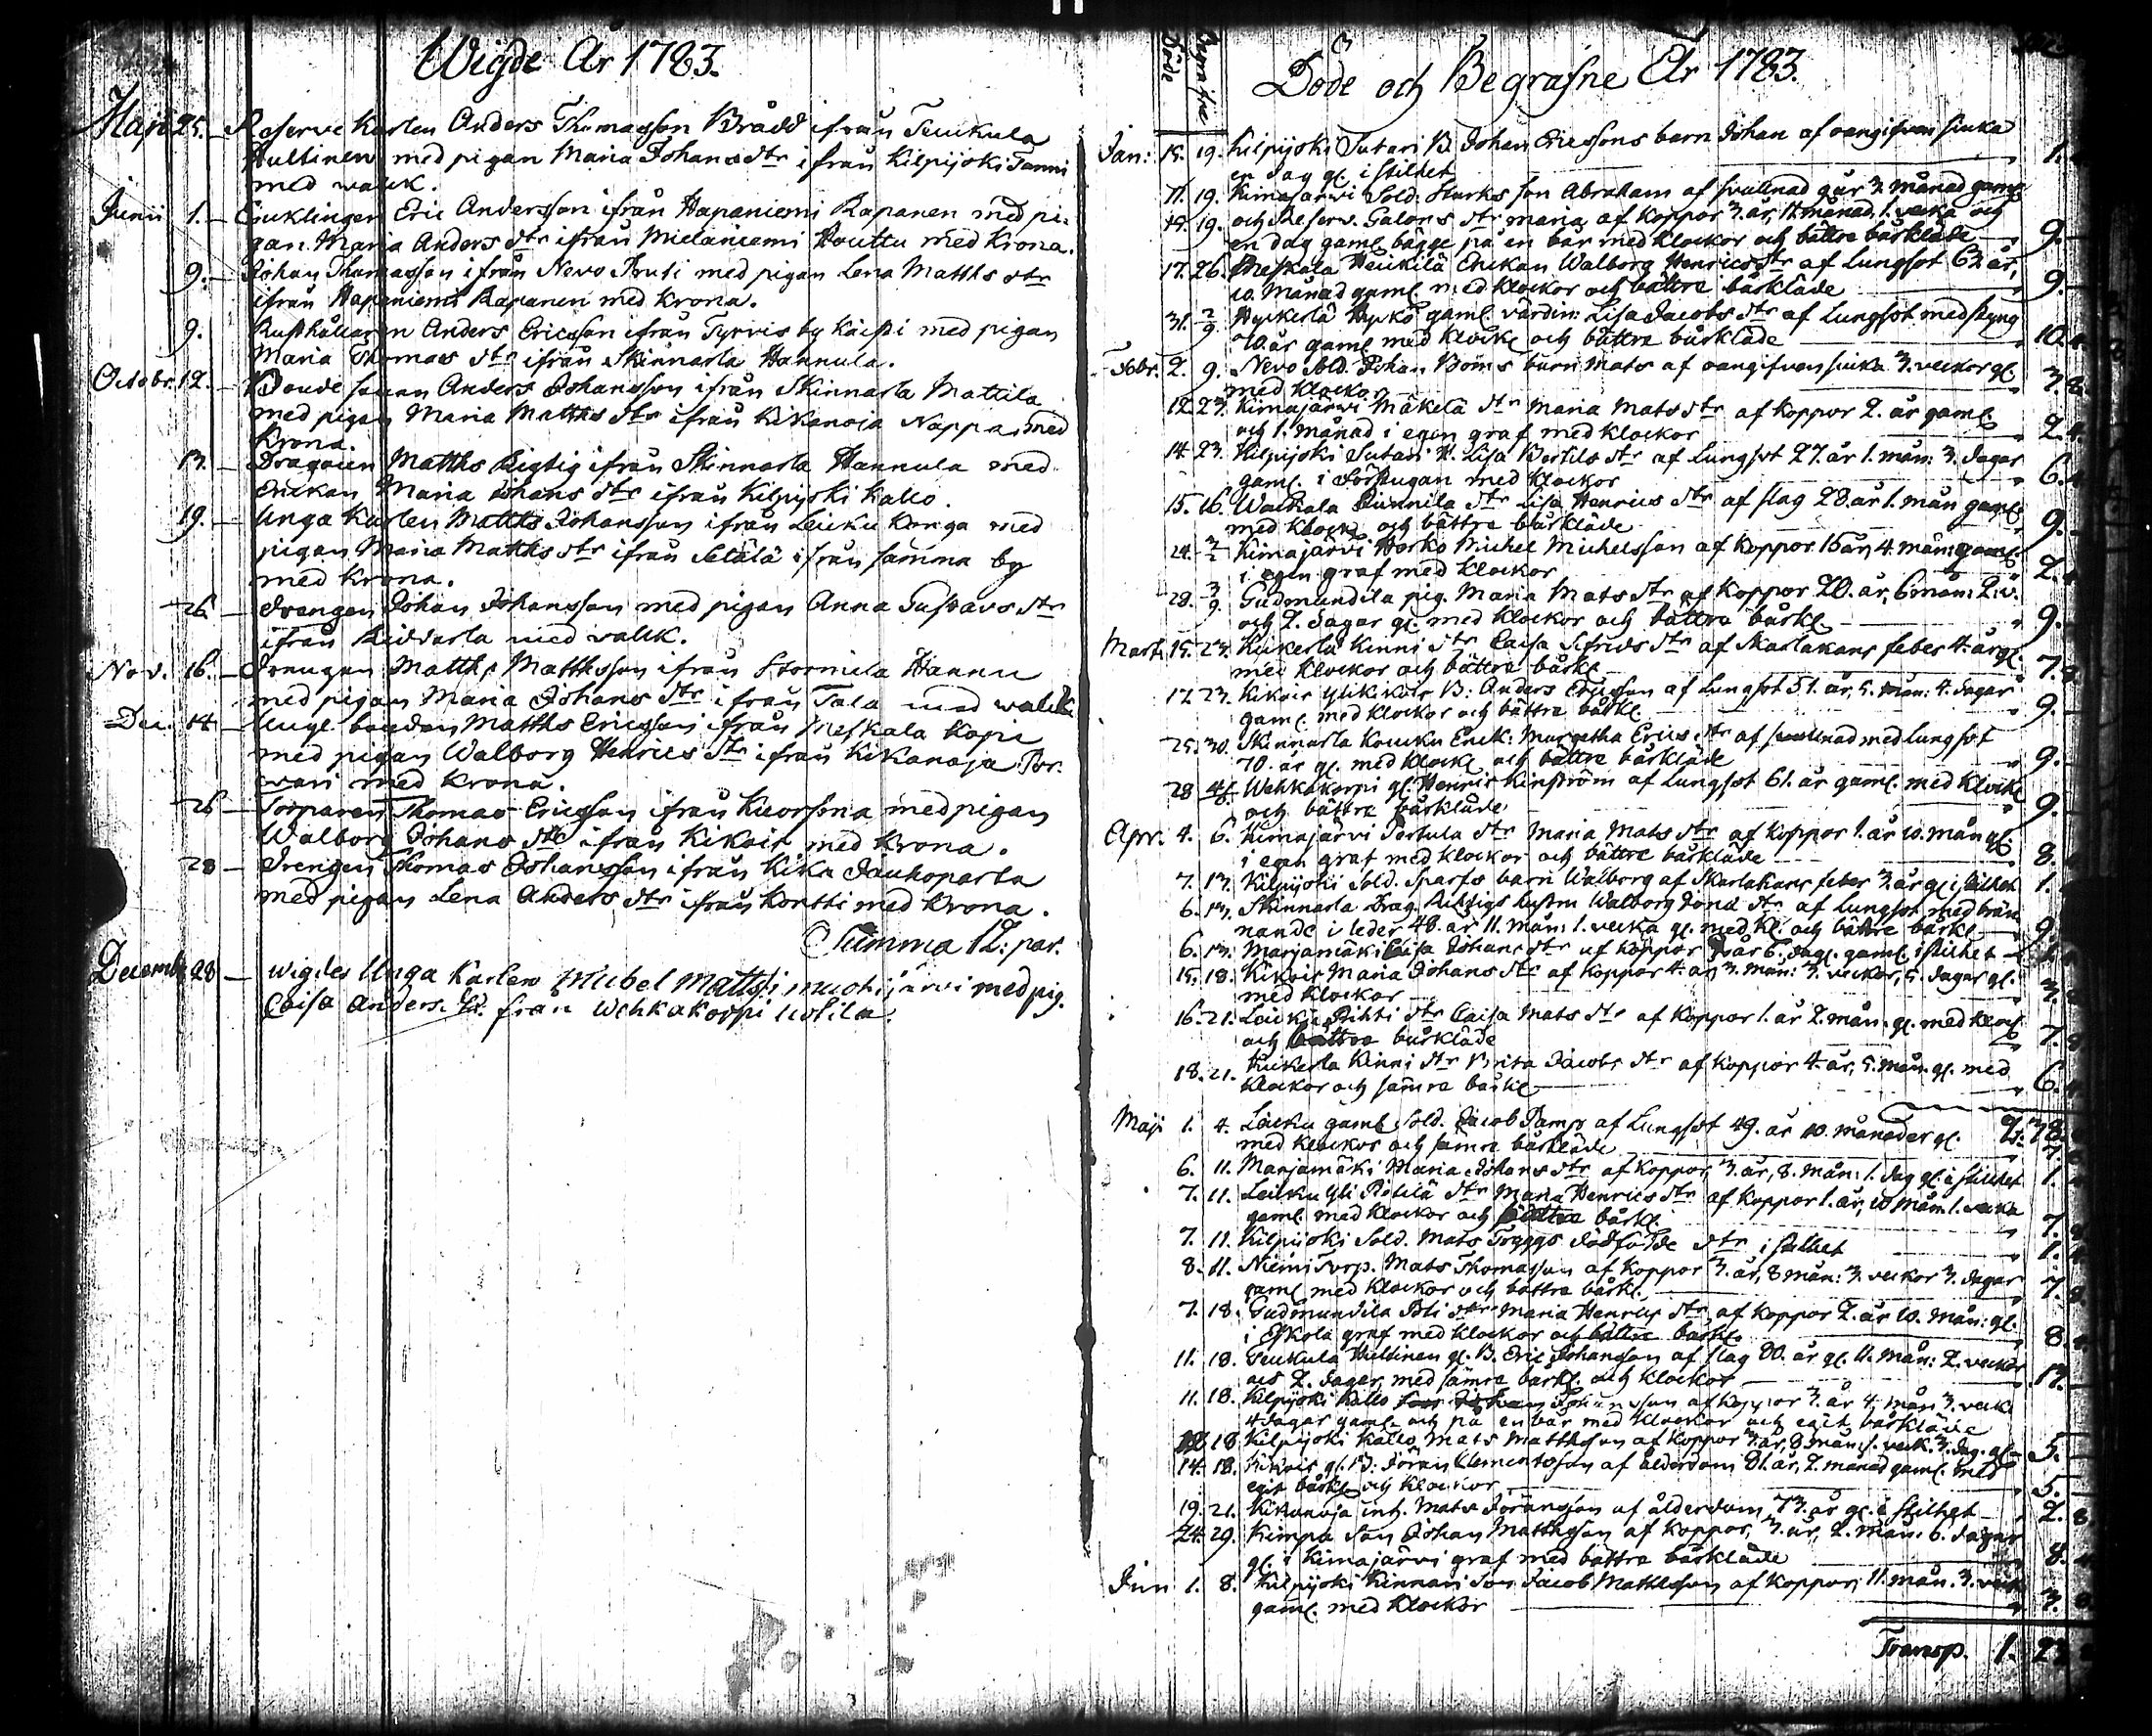 Wigde År 1783.
Maji 25. Reserve Karlen Anders Thomasson Brådd ifrån Teuckula
Hultinen med pigan Maria Johansdtr ifrån Kilpijoki Tanni
med walck.
Junii 1. Enklingen Eric Andersson ifrån Hapaniemi Rapanen med pi-
gan Maria Andersdtr ifrån Mielaniemi Houttu med Krona.
9. Johan Thomasson ifrån Nevo Pruti med pigan Lena Matthsdtr
ifrån Hapaniemi Rapanen med Krona.
9. Rusthållaren Anders Ericsson ifrån Tyrvis by Käispi med pigan
Maria Thomasdtr ifrån Skinnarla Hannula.
Octobr. 12. Bonde sonen Anders Johansson ifrån Skinnarla Mattila
med pigan Maria Matthsdtr ifrån Kikanoja Nappa med
Krona.
13. Dragoun Matths Rigtig ifrån Skinnarla Hannula med
Enckan Maria Johansdtr ifrån Kilpijoki Kallo.
19. Unga Karlen Matths Johansson ifrån Leicku Kanga med
pigan Maria Matthsdtr ifrån Setälä ifrån samma by
med Krona.
26. Drengen Johan Johansson med pigan Anna Gustavsdtr
ifrån med walck.
Nov. 16. Drengen Matths Matthsson ifrån Stormila Hannu
med pigan Maria Johansdtr ifrån Tala med walck
Dec. 14. Matths Ericsson ifrån Meskala Kopi
med pigan Walborg Henricsdtr ifrån Kikanoja Por-
vari med Krona.
26 Torparen Thomas Ericsson ifrån med pigan
Walborg Johansdtr ifrån Kikois med Krona.
28 Drengen Thomas Johansson ifrån Kika Jauhoparta
med pigan Lena Andersdtr ifrån Kortti med Krona.
Summa 12: par.
Decemb. 28 wigdes Unga Karlen Mickel Matts: i muotijärvi med pig.
Caisa Anders. Dr. från Wehkakorpi Ustila.
Döde Begrafne
Döde och Begrafne År 1783.
Jan: 15. 19. Kilpijoki Sutari B. Johan Ericssons barn Johan af oangifven siuka
en dag gl. i stilhet 1.
11. 19. Kimajärwi Sold. Starks son Abraham af svullnad 9 år 3 månad gaml
15. 19. och Reserv. Galons dtr maria af koppor 3. år, 11. månad, 1. vecka och
en dag gaml. bägge på en bår med klockor och bättre bårkläde 9.
17. 26. Meskala Heickilä Enckan Walborg Henricsdtr af Lungsot 63 år,
10. månad gaml med klockor och bättre bårkläde 9.
31. 2/9 Hyckerlä Hyckö gaml. värdin: Lisa Jacobsdtr af Lungsot med styng
70. år gaml med klock. och bättre bårkläde 10.
Febr. 2. 9. Nevo Sold. Johan Böms barn Mats af oangifven siuka 3. veckor gl.
med klockor 3. 8.
12. 23. Kimajärwi Mäkelä dtr Maria Matsdtr af koppor 2. år gaml.
och 1. månad i egen graf med klockor 2.
14. 23. Kilpijoki Sutari H. Lisa Bertilsdtr af Lungsot 27. år 1. mån: 3. dagar
gaml. i med klockor 6.
15. 16. Waickala dtr Lisa Henricsdtr af slag 28. år 1. mån gaml
med klock. och bättre bårkläde 9.
24. 3/2 Kimajärvi Horko Michel Michelsson af koppor 15 år, 4. mån: gaml.
i egen graf med klockor 2.
28. 3/9 Gudmundila pig. Maria Matsdtr af koppor 20. år, 6 mån: 2. v.
och 2. dagar gl. med klockor och bättre bårkl. 9.
Mart. 15. 23. Kuckerla Kinni dtr Caisa Sifridsdtr af Skarlakans feber 4. år gl.
med klockor och bättre bårkl. 7.
17 23. Kikois Ylikikois B: Anders Ericsson af Lungsot 51. år, 5. mån: 4. dagar
gaml. med klockor och bättre bårkl. 9.
25. 30. Skinnarla Kouckku Enck: Margetha Ericsdtr af svullnad med Lungsot
70. år gl. med klock. och bättre bårkläde 9.
28 Wehkakorpi gl. Henric Kinström af Lungsot 61. år gaml. med klock
och bättre bårkläde 9.
Apr. 4. 6. Kimajärvi Pertula dtr Maria Matsdtr af koppor 1. år 10. mån gl
i egen graf med klockor och bättre bårkläde 8.
7. 13. Kilpijoki Sold. Sparfs barn Walborg af Skarlakans feber 3. år gl. i stilhet 1.
6. 13. Skinnarla Drag. Riktigs hustru Walborg Jöransdtr af Lungsot med brän-
nande i leder 48. år 11. mån: 1. vecka gl. med kl. och bättre bårkl. 9.
6. 13. Marjamäki Caisa Johansdtr af koppor år 6. dag. gaml. i stilhet
15. 18. Kikois Maria Johansdtr af koppor 4. år 3. mån: 3. veckor, 5. dagar gl.
med klockor 3.
16. 21. Leicku Pihti dtr Caisa Matsdtr af koppor 1. år 2. mån. gl. med klock
och bättre bårkläde 7.
18. 21. Kuckerla Kinni dtr Brita Jacobsdtr af koppor 4. år, 5. mån. gl. med
klockor och sämre bårkl. 6.
Maji 1. 4. Leicku gaml Sold. Jacob Damp af Lungsot 49. år 10. månader gl.
med klockor och sämre bårkläde 7.
6. 11. Marjamäki Maria Johansdtr af koppor, 3. år, 8. mån: 1. dag gl. i stilhet 1.
7. 11. Leicku Yli Pietilä dtr Maria Henricsdtr af koppor 1. år, 10 mån. 1. vecka
gaml. med klockor och bättre bårkl. 7.
7. 11. Kilpijoki Sold. Mats Tryggs dödfödde dtr i stilhet 1.
8. 11. Niemi Torp. Mats Thomasson af koppor 3. år, 8 mån: 3. veckor 3. dagar
gaml med klockor och bättre bårkl. 7.
7. 18. Gudmundila dtr Maria Henricsdtr af koppor 2. år 10. mån: gl.
i Eskola graf med klockor och bättre bårkl. 8.
11. 18. Teuckula Hultinen gl. B. Eric Johansson af slag 80. år gl. 11. mån: 2. veckor
och 2. dagar med sämre bårkl. och klockor 17.
11. 18. Kilpijoki Kallo Johansson af koppor 3. år 4. mån 3. veck
4 dagar gaml. och på en bår med klockor och eget bårkläde
18 Kilpijoki Kallo Mats Matthsson af koppor 3. år, 8. mån: 1. veck. 3. dag. gl. 5.
14. 18. Kikois gl. B: Jöran Clementsson af ålderdom 81. år, 2. månad gaml. med
egit bårkl. och klockor 5.
19. 21. Kikanoja inh. Mats Jöransson af ålderdom 73. år gl. i stilhet 2. 8.
24. 29. Kimpa Son Johan Matthsson af koppor, 3. år, 2. mån. 6. dagar
gl. i Kimajärvi graf med bättre bårkläde 8.
Jun 1. 8. Kilpijoki Kinnari Son Jacob Matthsson af koppor, 11. mån. 3. veck
gaml. med klockor 3.
Transp. 1. 23